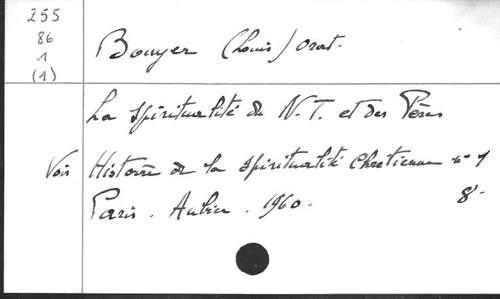 255
86
1
(1)
Bouyer (Louis) Orat.
La spiritualité du N. T. et des Pères
Voir Histoire de la spiritualité chretienne n° 1
Paris. Aubier. 1960. 8°